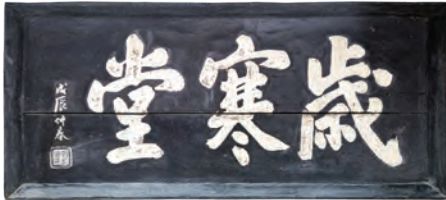 歲寒堂
戊辰仲春